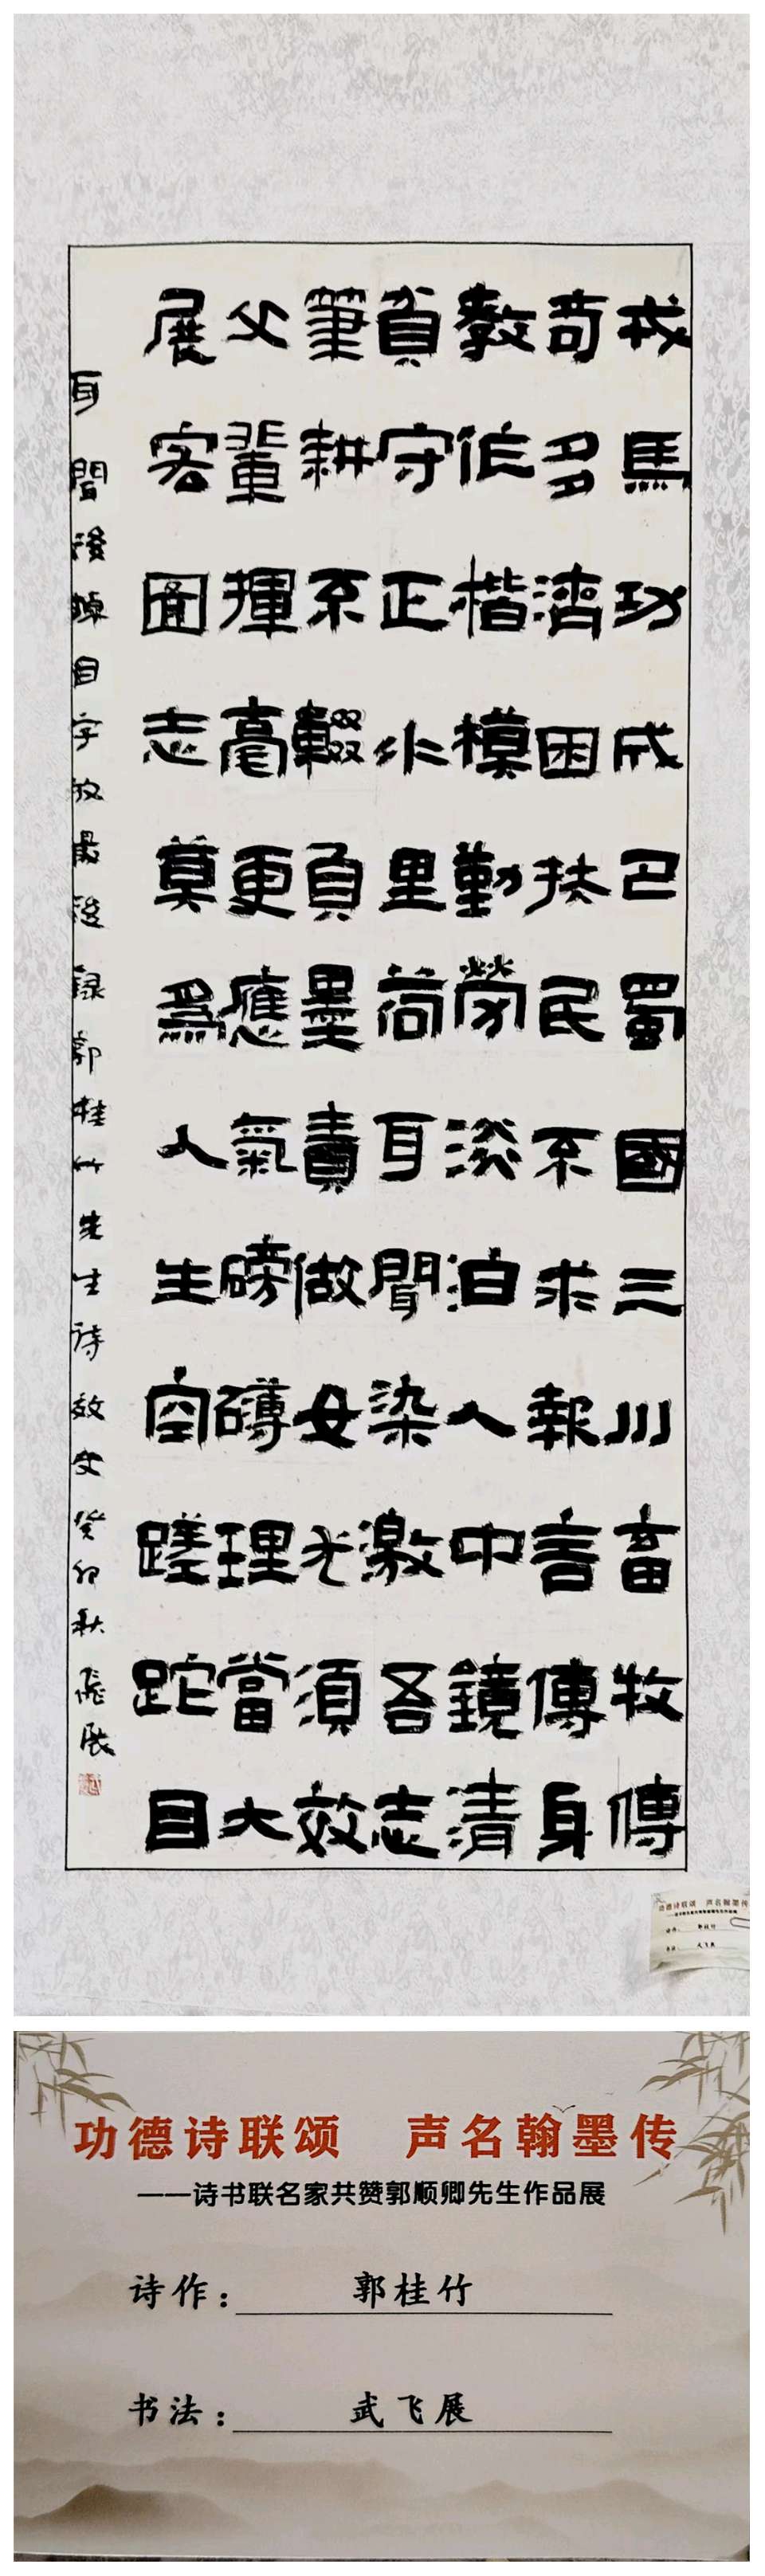 戎馬功成巴蜀國三川畜牧傳
奇多濟困扶民不求報言傳身
教作楷模勤勞淡泊人中鏡清
貧守正外里荷耳聞染激吾志
筆耕不輟負墨責做女尤須效
父輩揮毫更應氣磅礴理當大
展宏圖志莫為人生空蹉跎目
耳聞後掉目字放最後錄郭桂竹先生詩效父癸卯秋飛展
功德诗联颂 声名翰墨传
——诗书联名家共赞郭顺卿先生作品展
诗作：郭桂竹
书法：武飞展